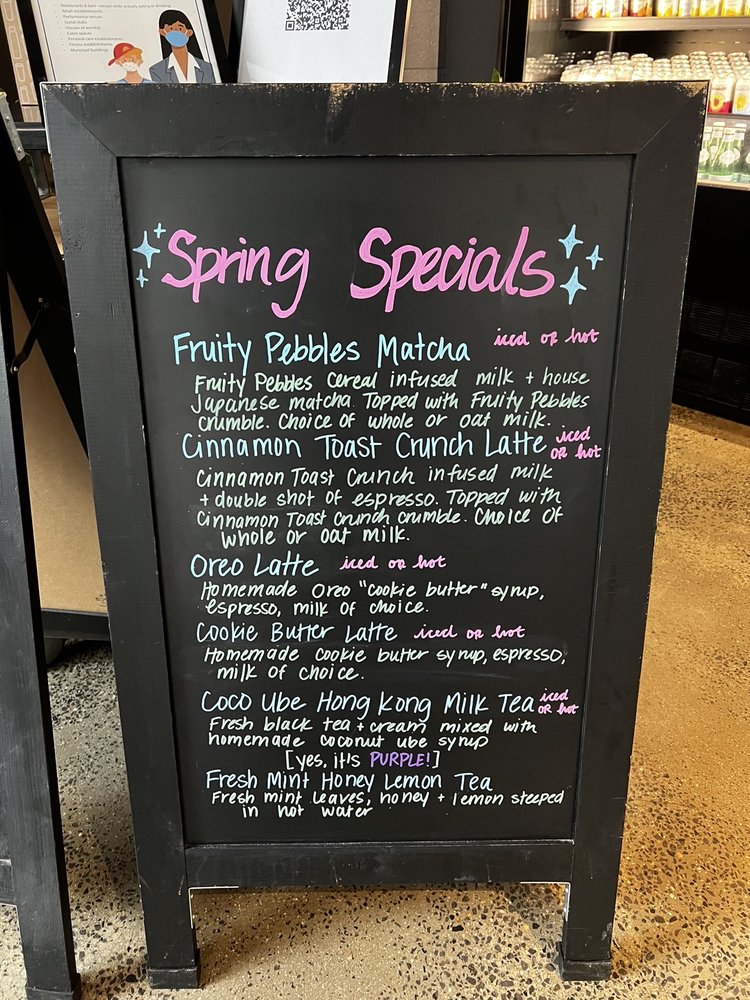 Restaurants & bars - except while actively eating or drinking
Retail establishments
Performance venues
Social clubs
Houses of worship
Event spaces
Personal care establishments
Fitness establishments
Municipal buildings
Spring Specials
Fruity Pebbles Matcha iced or hot
Fruity Pebbles Cereal infused milk + house
Japanese matcha. Topped with Fruity Pebbles
crumble. Choice of whole or oat milk.
Cinnamon Toast Crunch Latte iced or hot
Cinnamon Toast Crunch infused milk
+ double shot of espresso. Topped with
Cinnamon Toast Crunch crumble. Choice of
whole or oat milk.
Oreo Latte iced or hot
Homemade Oreo "cookie butter" syrup,
espresso, milk of choice.
Cookie Butter Latte iced or hot
Homemade Cookie butter syrup, espresso,
milk of choice.
Coco Ube Hong Kong Milk Tea iced or hot
Fresh black tea + cream mixed with
homemade coconut ube syrup
[yes, it's PURPLE!]
Fresh Mint Honey Lemon Tea
Fresh mint leaves, honey + lemon steeped
in hot water